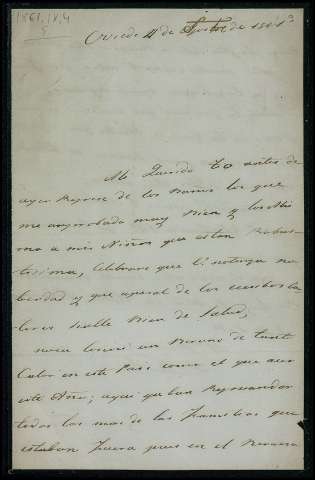 1861, IX, 4
Oviedo 4 de Sptbre de 1861
Mi Querido Tio antes de
ayer Regrese de los Banos los que
me an probado muy Bien y lo Mis
mo a mis Niños que estan Robus
tisima, Celebrare que V. no tenga no
bedad y que apesar de los
lores se alle Bien de Salud,
nunca conoci un Berano de tanto
Calor en este Pais como el que ace
este Año; aqui ya ban Regresando
todas las mas de las Familias que
estaban fuera pues en el Berano